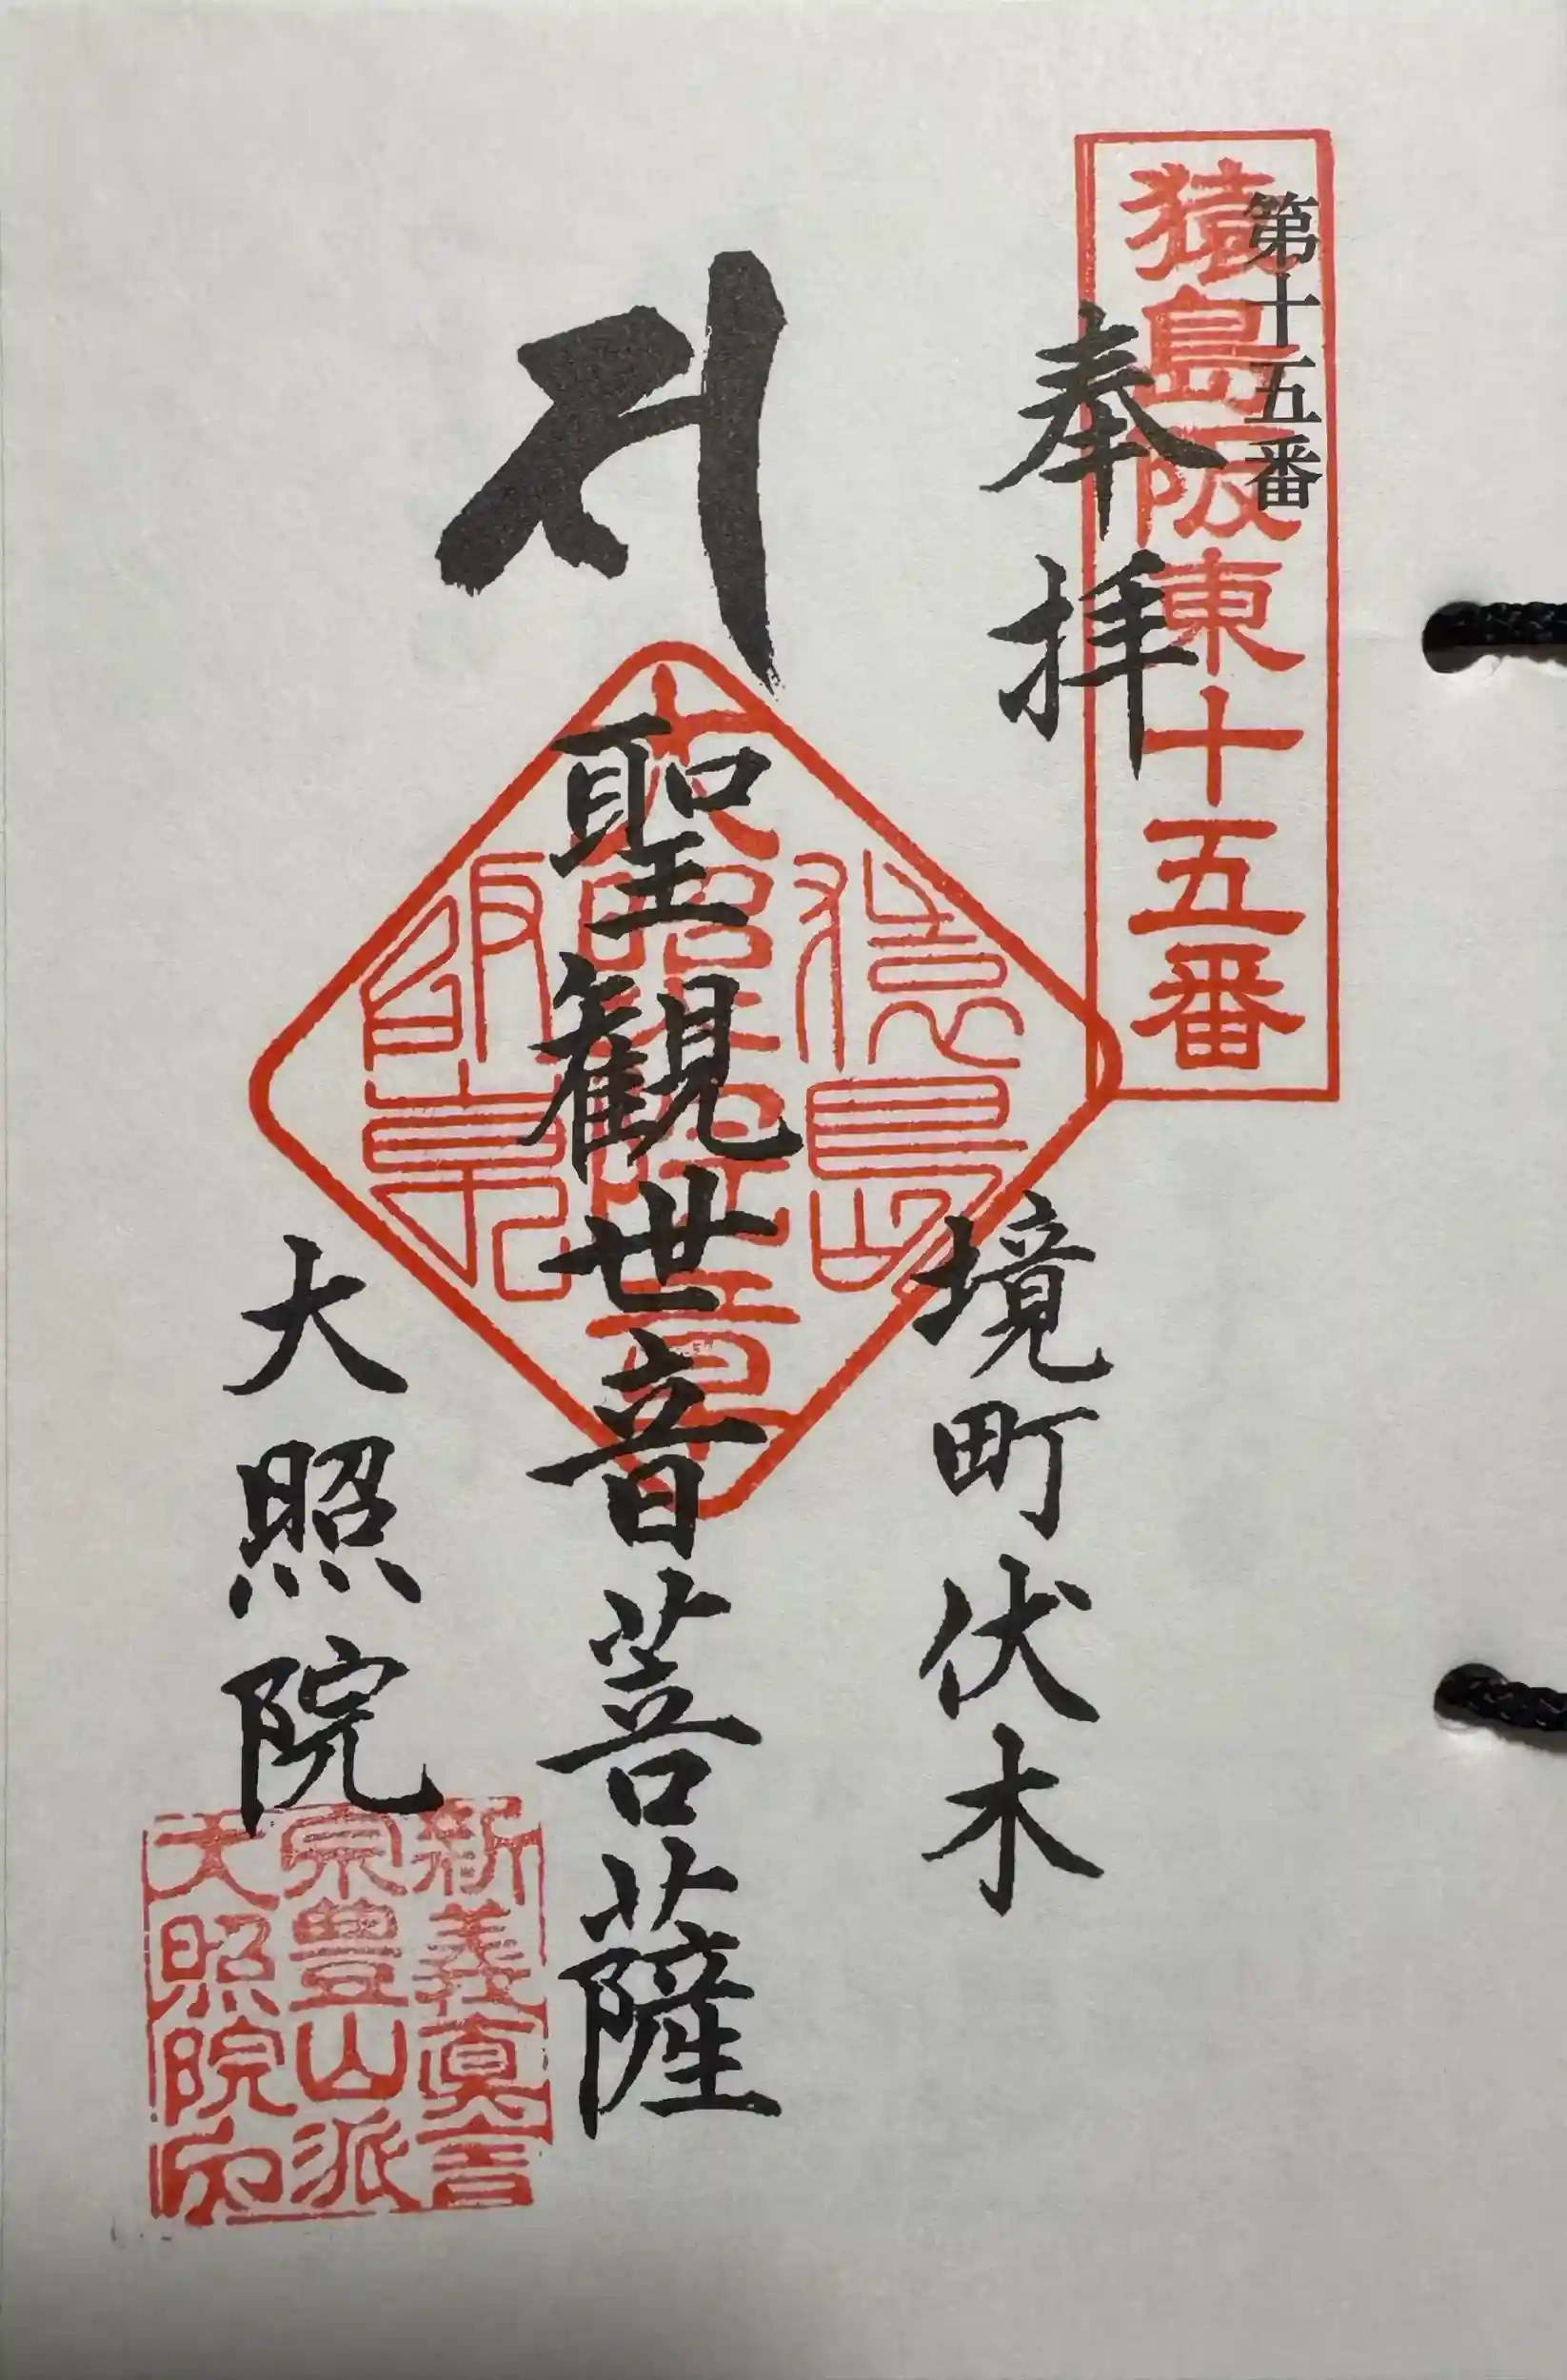 第十五番
猿島阪東十五番
奉拝
境町伏木
聖観世音菩薩
猿島
阪東
大照院
新義真言
宗豊山派
大照院印